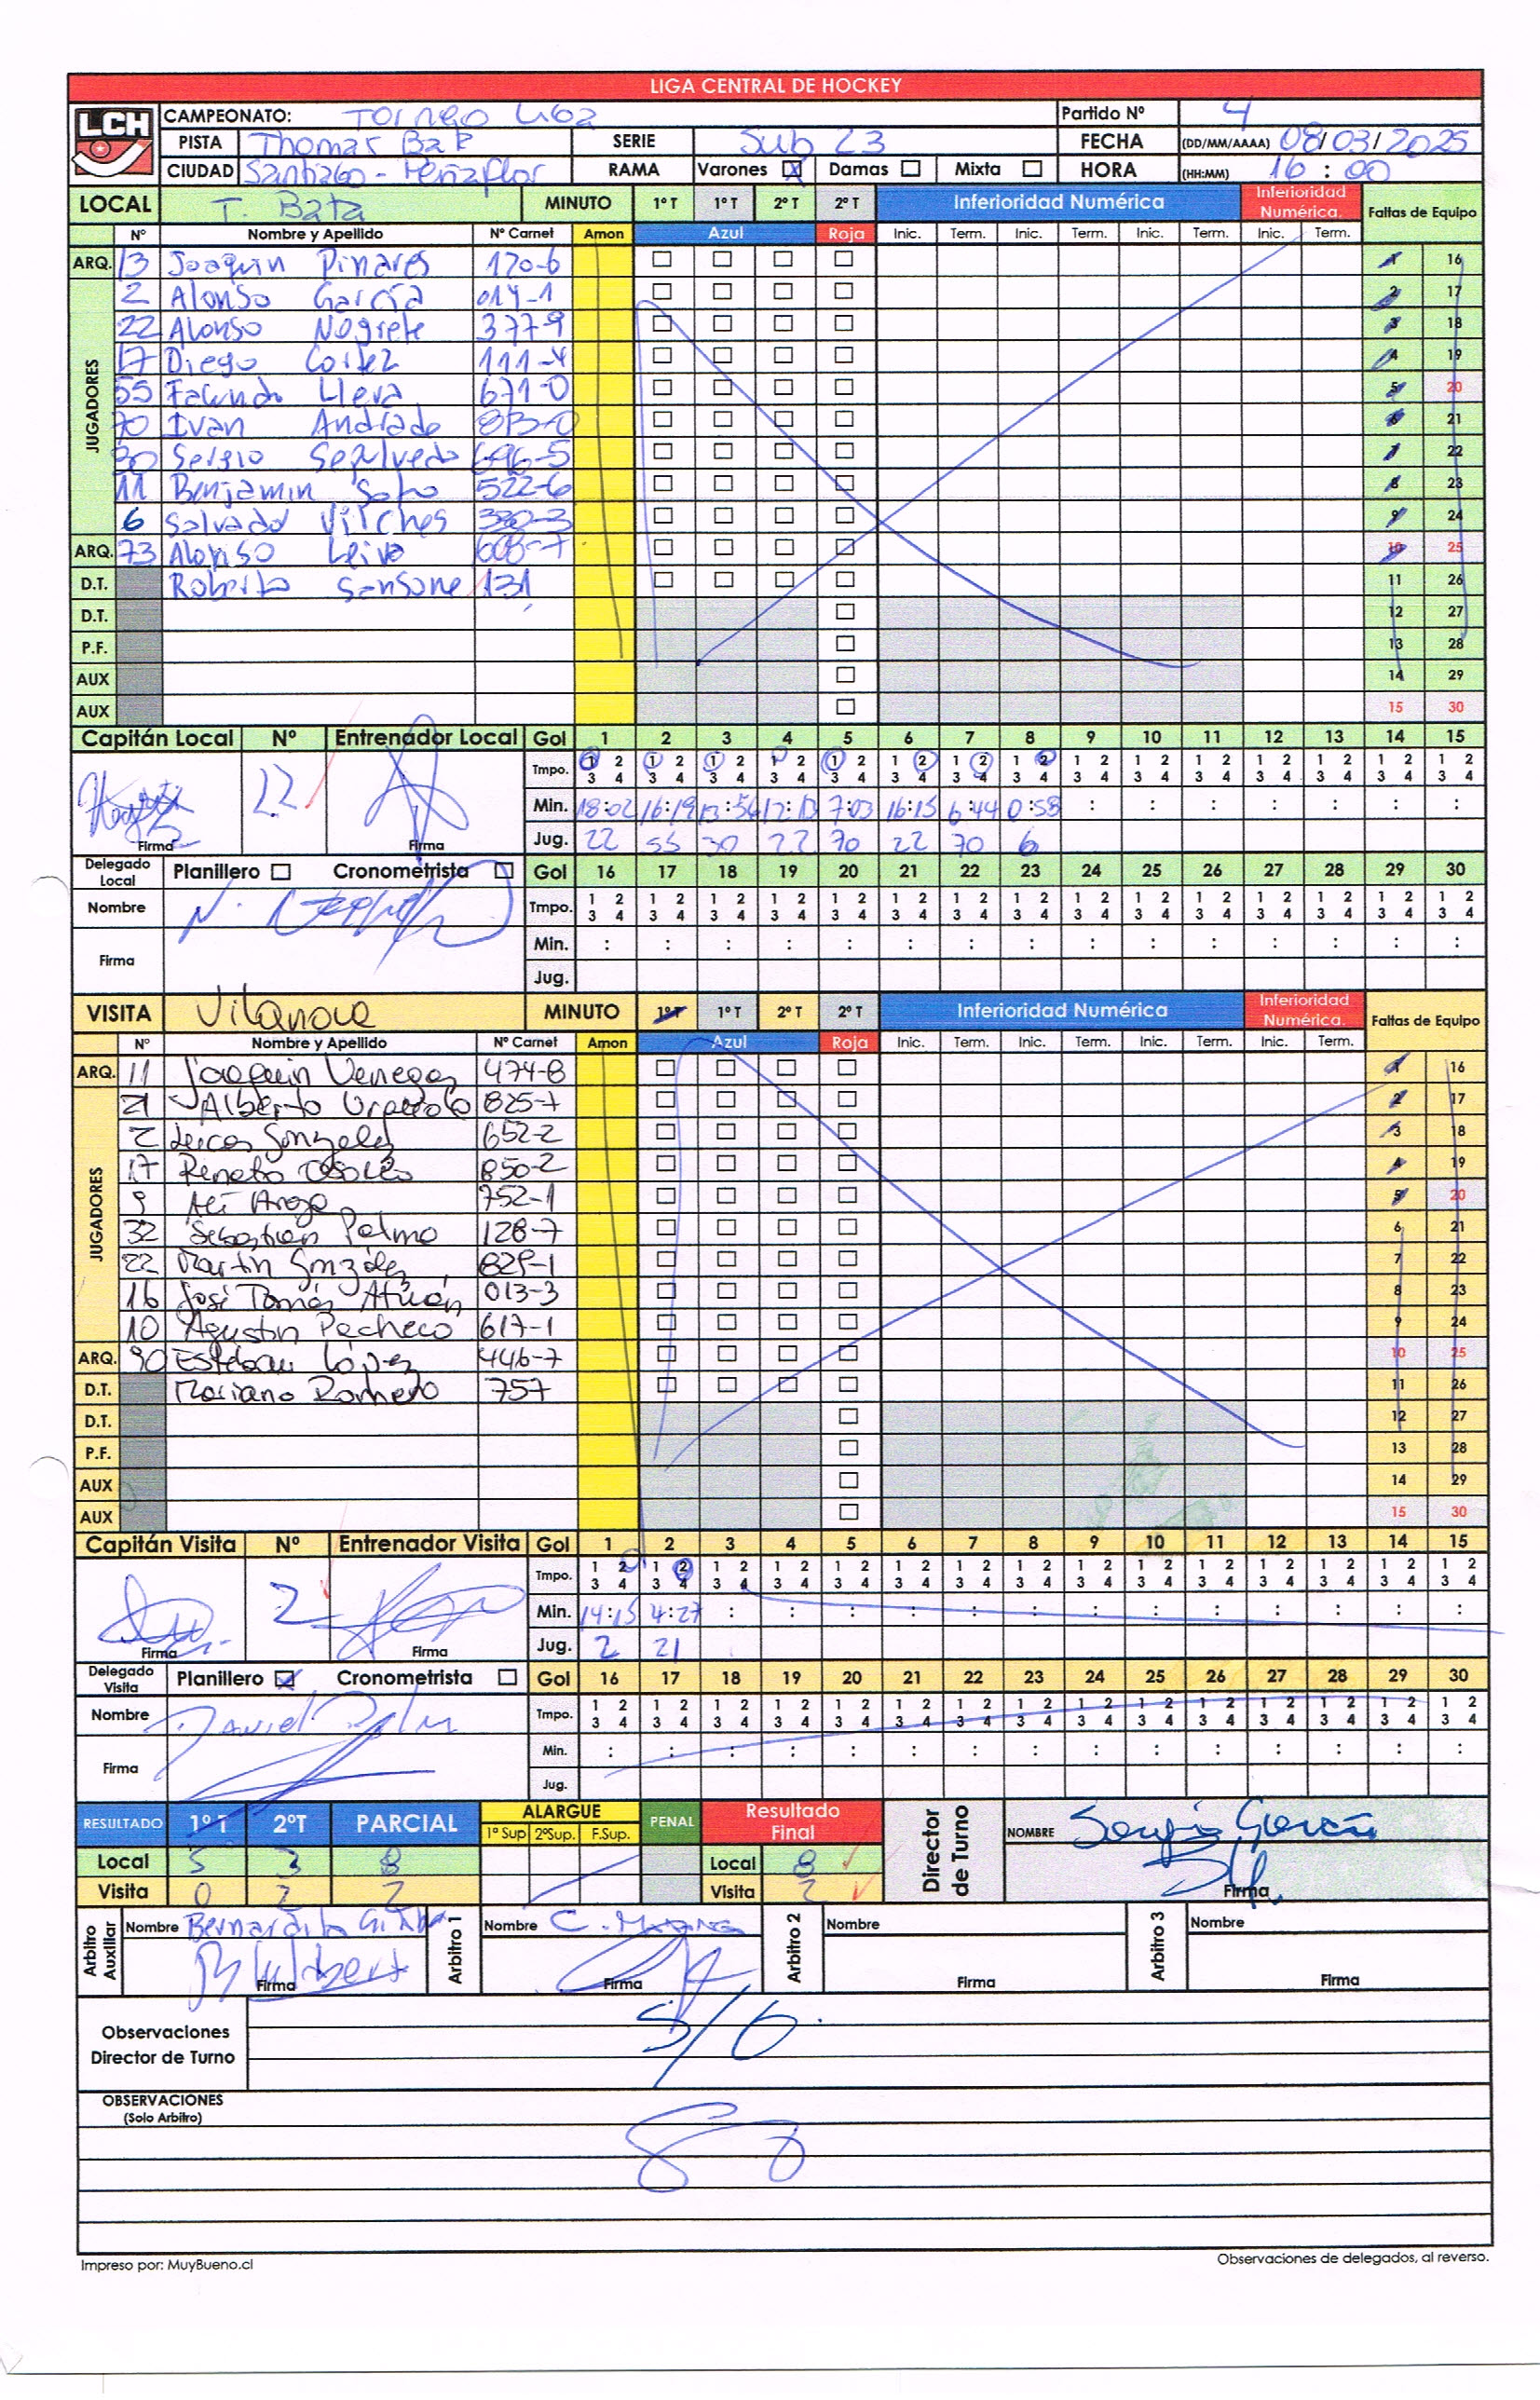 LIGA CENTRAL DE HOCKEY
LCH
CAMPEONATO: Torneo Liga Partido Nº 4
PISTA Thomas Bata SERIE Sub 23 FECHA (DD/MM/AAAA) 08/03/2025
CIUDAD Santiago - Peñaflor RAMA Varones Damas Mixta HORA (HH:MM) 16:00
LOCAL T. Bata MINUTO 1º T 1º T 2º T 2º T Inferioridad Numérica Inferioridad Numérica. Faltas de Equipo
Nº Nombre y Apellido Nº Carnet Amon Azul Roja Inic. Term. Inic. Term. Inic. Term. Inic. Term.
ARQ. 13 Joaquin Pinares 170-6 1 16
JUGADORES
2 Alonso García 014-1 2 17
22 Alonso Negrete 377-9 3 18
17 Diego Cortez 111-4 4 19
55 Facundo Lleva 671-0 5 20
70 Ivan Andrade 813-0 6 21
30 Sergio Sepulveda 696-5 7 22
11 Benjamin Soto 522-6 8 23
6 Salvador Vilches 330-3 9 24
ARQ. 73 Alonso Leiva 608-7 10 25
D.T. Roberto Sansone 131 11 26
D.T. 12 27
P.F. 13 28
AUX 14 29
AUX 15 30
Capitán Local Nº Entrenador Local Gol 1 2 3 4 5 6 7 8 9 10 11 12 13 14 15
22 Tmpo. 1 2 3 4 1 2 3 4 1 2 3 4 1 2 3 4 1 2 3 4 1 2 3 4 1 2 3 4 1 2 3 4 1 2 3 4 1 2 3 4 1 2 3 4 1 2 3 4 1 2 3 4 1 2 3 4 1 2 3 4
Min. 18:02 16:19 13:54 12:13 7:03 16:15 6:44 0:58 : : : : : : :
Firma Firma Jug. 22 55 30 22 70 22 70 6
Delegado Local Planillero Cronometrista Gol 16 17 18 19 20 21 22 23 24 25 26 27 28 29 30
Nombre Tmpo. 1 2 3 4 1 2 3 4 1 2 3 4 1 2 3 4 1 2 3 4 1 2 3 4 1 2 3 4 1 2 3 4 1 2 3 4 1 2 3 4 1 2 3 4 1 2 3 4 1 2 3 4 1 2 3 4 1 2 3 4
Firma Min. : : : : : : : : : : : : : : :
Jug.
VISITA Vilanova MINUTO 1º T 1º T 2º T 2º T Inferioridad Numérica Inferioridad Numérica. Faltas de Equipo
Nº Nombre y Apellido Nº Carnet Amon Azul Roja Inic. Term. Inic. Term. Inic. Term. Inic. Term.
ARQ. 11 Joaquin Venegas 474-8 1 16
JUGADORES
21 Alberto 825-7 2 17
2 Lucas Gonzalez 652-2 3 18
17 Renato Osorio 850-2 4 19
9 Alí Araya 752-1 5 20
32 Sebastian Palma 128-7 6 21
22 Martin González 829-1 7 22
16 José Tomás 013-3 8 23
10 Agustin Pacheco 617-1 9 24
ARQ. 90 Esteban López 446-7 10 25
D.T. Mariano Romero 757 11 26
D.T. 12 27
P.F. 13 28
AUX 14 29
AUX 15 30
Capitán Visita Nº Entrenador Visita Gol 1 2 3 4 5 6 7 8 9 10 11 12 13 14 15
2 Tmpo. 1 2 3 4 1 2 3 4 1 2 3 4 1 2 3 4 1 2 3 4 1 2 3 4 1 2 3 4 1 2 3 4 1 2 3 4 1 2 3 4 1 2 3 4 1 2 3 4 1 2 3 4 1 2 3 4 1 2 3 4
Min. 14:15 4:27 : : : : : : : : : : : : :
Firma Firma Jug. 2 21
Delegado Visita Planillero Cronometrista Gol 16 17 18 19 20 21 22 23 24 25 26 27 28 29 30
Nombre Daniel Palma Tmpo. 1 2 3 4 1 2 3 4 1 2 3 4 1 2 3 4 1 2 3 4 1 2 3 4 1 2 3 4 1 2 3 4 1 2 3 4 1 2 3 4 1 2 3 4 1 2 3 4 1 2 3 4 1 2 3 4 1 2 3 4
Firma Min. : : : : : : : : : : : : : : :
Jug.
RESULTADO 1º T 2ºT PARCIAL ALARGUE PENAL Resultado Final Director de Turno
1º Sup 2ºSup. F.Sup. NOMBRE Sergio García
Local 5 3 8 Local 8
Visita 0 2 2 Visita 2 Firma
Arbitro Auxiliar Nombre Bernardita Arbitro 1 Nombre Arbitro 2 Nombre Arbitro 3 Nombre
Firma Firma Firma Firma
Observaciones Director de Turno S/O.
OBSERVACIONES
(Solo Arbitro)
Impreso por: MuyBueno.cl Observaciones de delegados, al reverso.